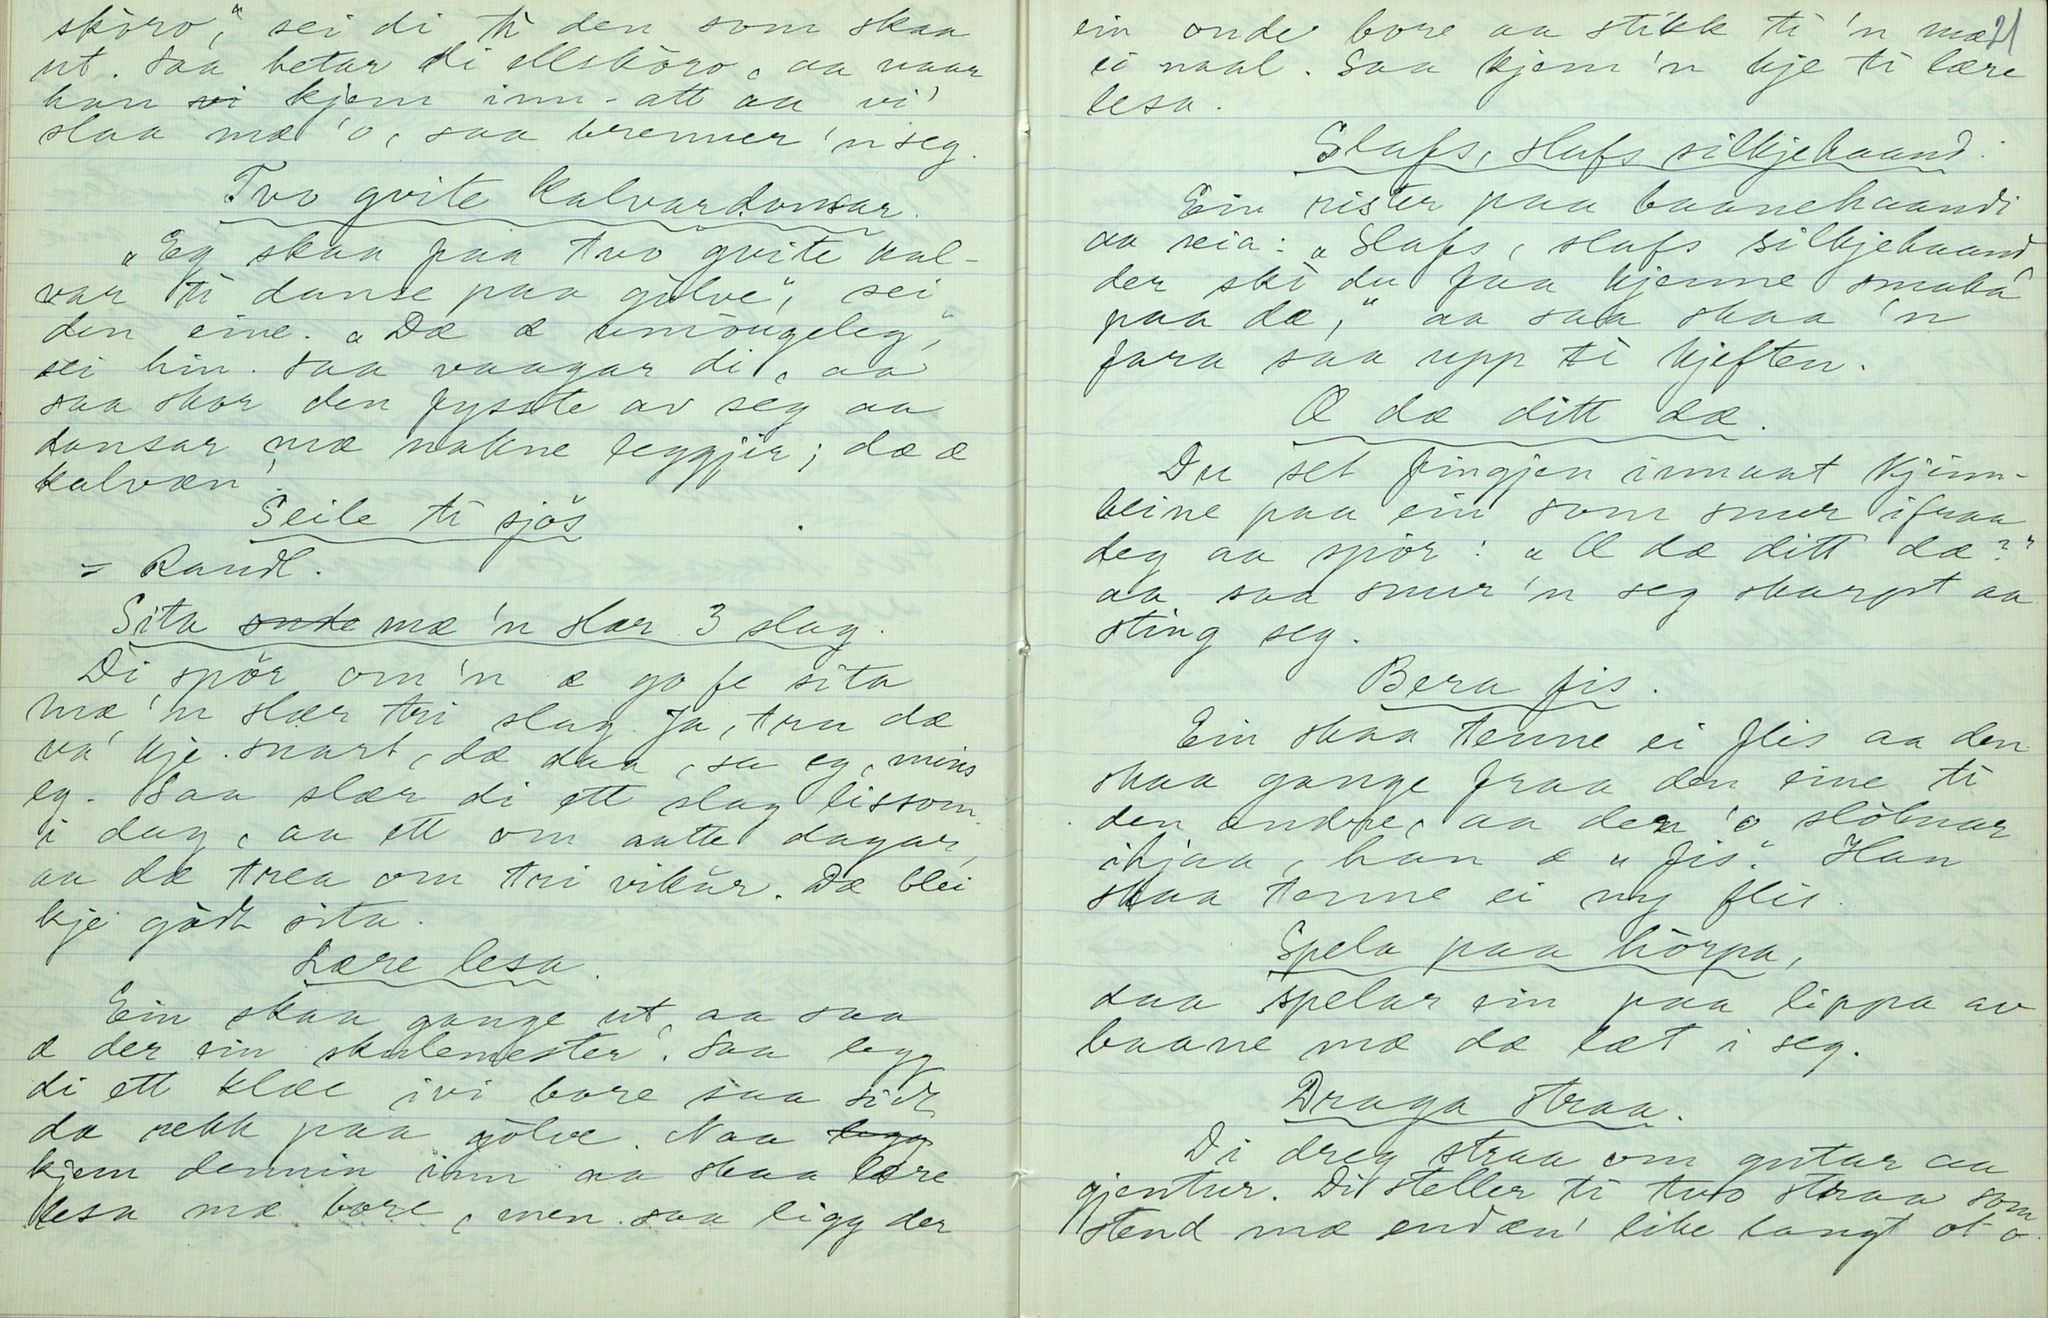 skôro", sei di ti den som skaa
ut. Saa hetar di ellskôro, aa naar
han vi kjem inn-att aa vi'
slaa mæ 'o, saa brenner 'n seg.
Tvo gvite kalvar dansar.
"Eg skaa faa tvo gvite kal-
var ti danse paa gôlve", sei
den eine. "Dæ æ umôugeleg",
sei hin. Saa vaagar di, aa
saa skor den fysste av seg aa
dansar mæ nakne leggjir; dæ æ
kalvæn'.
Seile ti sjôs
= Randl.
Sita mæ 'n slær 3 slag.
Di spör om 'n æ go fe sita
mæ 'n slær tri slag. Ja, tru dæ
va' kje snart, dæ daa, sa eg, mins
eg. Saa slær di ett slag lissom
i dag, aa ett om aatte dagar,
aa dæ trea om tri vikur. Dæ blei
kje gôdt sita.
Lære lesa.
Ein skaa gange ut, aa saa
æ der ein skulemester. Saa legg
di ett klæe ivi bore saa sidt
dæ rekk paa gôlve. Naa legg
kjem dennin inn aa skaa lære
lesa mæ bore, men saa ligg der
21
ein onde bore aa stikk ti 'n mæ
ei naal. Saa kjem 'n kje ti lære
lesa.
Slafs, slafs silkjebaand.
Ein rister paa baanehaandi
aa seia: "Slafs, slafs silkjebaand
der ski du faa kjenne smaka
paa dæ," aa saa skaa 'n
fara saa upp ti kjeften.
Æ dæ ditt dæ.
Du set fingjen innaat kjinn-
beine paa ein som snur ifraa
deg aa spör: "Æ dæ ditt dæ?"
aa saa snur 'n seg skarpt aa
sting seg.
Bera fis.
Ein skaa tenne ei flis aa den
skaa gange fraa den eine ti
den andre, aa den 'o slôknar
ihjaa, han æ "fis". Han
skaa tenne ei ny flis.
Spela paa hôrpa,
daa spelar ein paa lippa av
baane mæ dæ læt i seg.
Draga straa.
Di dreg straa om gutar aa
gjentur. Di steller ti tvo straa som
stend mæ endæn' like langt ot o